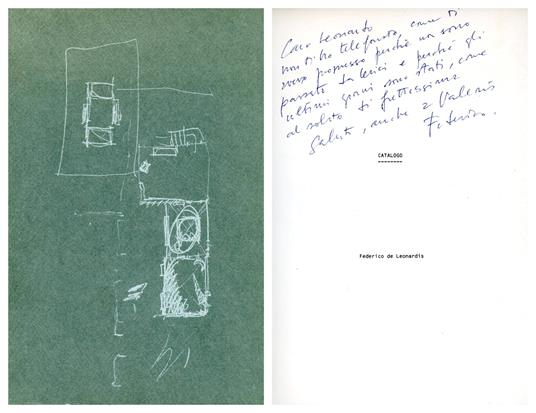 Caro Leonardo
non ti ho telefonato, come ti
avevo promesso perché non sono
passato da Lerici e perché gli
ultimi giorni sono stati, come
al solito di frettissima
Saluti, anche a Valeria
Federico.
CATALOGO
--------
Federico de Leonardis